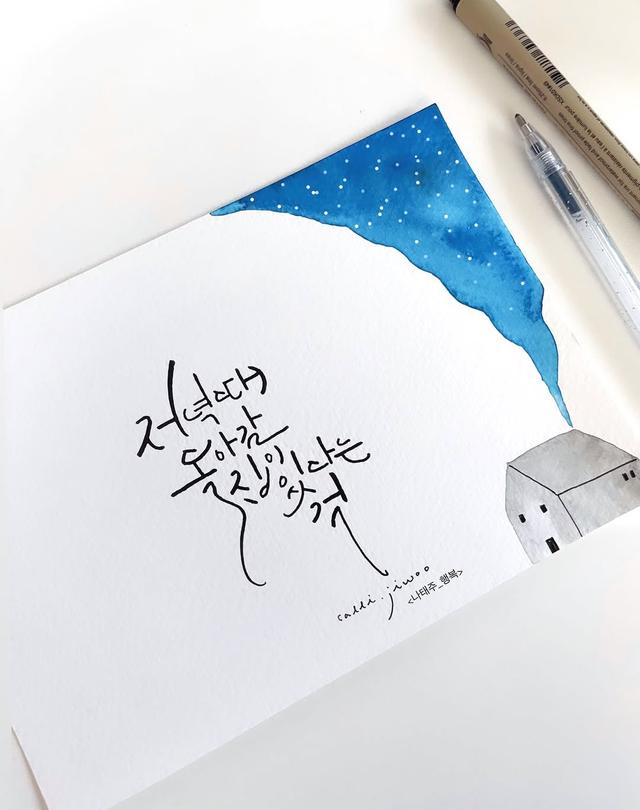 저녁때
돌아갈
집이 있다는
것
calli.jiwoo
<나태주_행복>